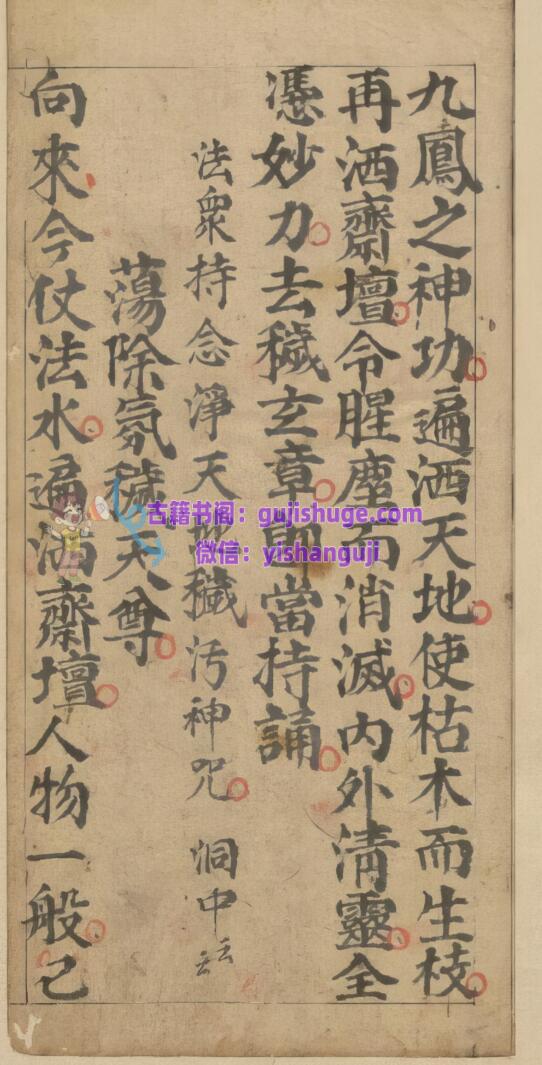 九鳳之神功遍洒天地使枯木而生枝
再洒齋壇令腥塵而消滅内外清靈全
憑妙力去穢玄章即當持誦
法衆持念淨天地穢污神咒 洞中云云
蕩除氛穢天尊
向來今仗法水遍洒齋壇人物一般已
古籍书阁:gujishuge.com
微信:yishanguji